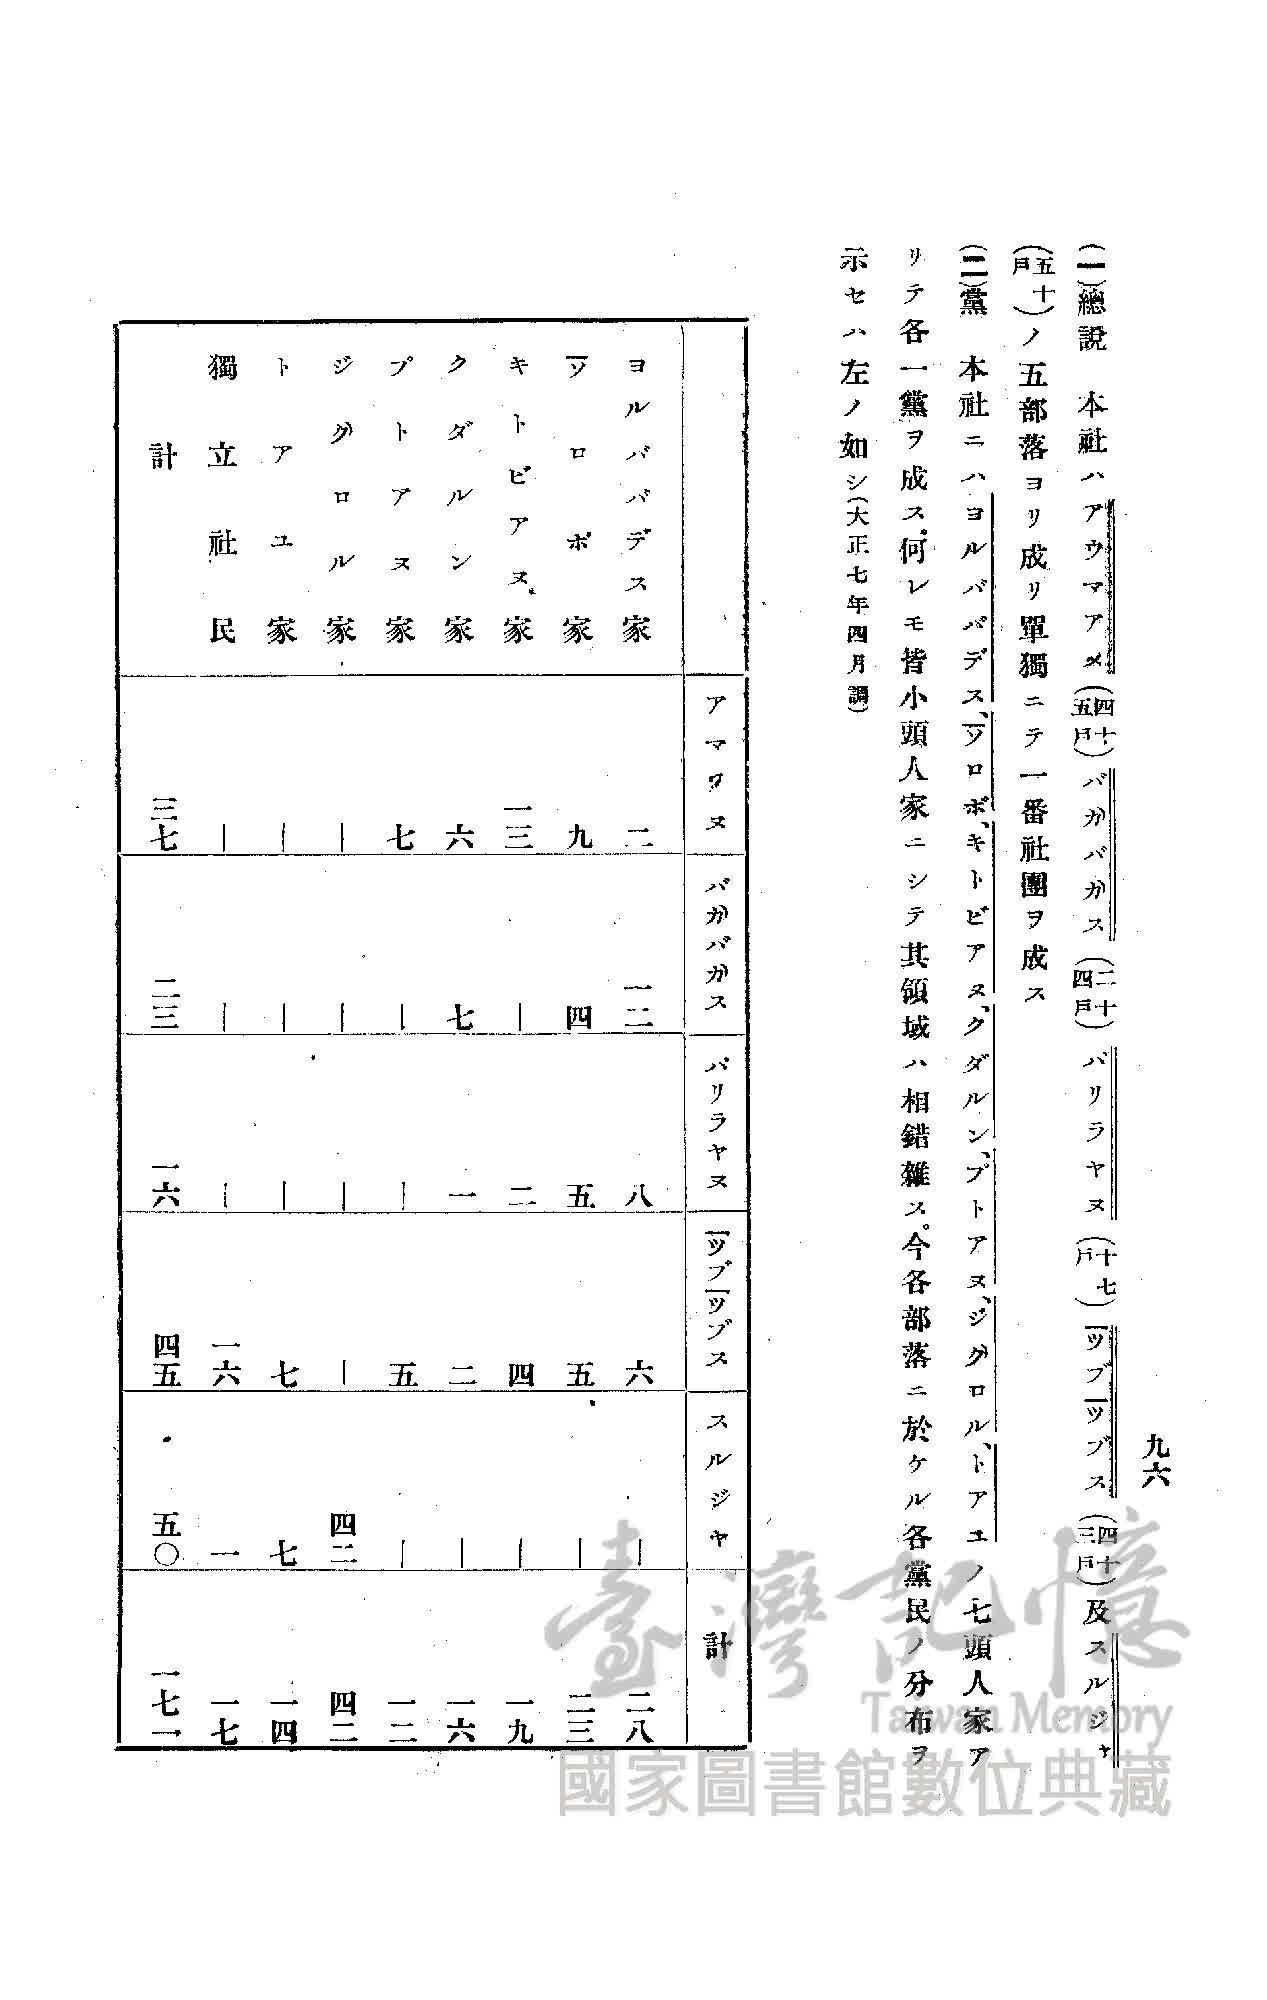 九六
(一)總說　本社ハアウマアヌ(四十五戶)バガバガス(二十四戶)バリラヤヌ(十七戶)ツブツブス(四十三戶)及スルジヤ
(五十戶)ノ五部落ヨリ成リ單獨ニテ一番社團ヲ成ス
(二)黨　本社ニハヨルババデス、ソロボ、キトビアヌ、クダルン、プトアヌ、ジグロル、トアユノ七頭人家ア
リテ各一黨ヲ成ス。何レモ皆小頭人家ニシテ其領域ハ相錯雜ス。今各部落ニ於ケル各黨民ノ分布ヲ
示セハ左ノ如シ(大正七年四月調)
アマワヌ　バガバガス　バリラヤヌ　ツブツブス　スルジヤ　計
ヨルババデス家　二　一二　八　六　｜　二八
ソロボ家　九　四　五　五　｜　二三
キトビアヌ家　一三　｜　二　四　｜　一九
クダルン家　六　七　一　二　｜　一六
プトアヌ家　七　｜　｜　五　｜　一二
ジグロル家　｜　｜　｜　｜　四二　四二
トアユ家　｜　｜　｜　七　七　一四
獨立社民　｜　｜　｜　一六　一　一七
計　三七　二三　一六　四五　五〇　一七一
臺灣記憶
Taiwan Memory
國家圖書館數位典藏